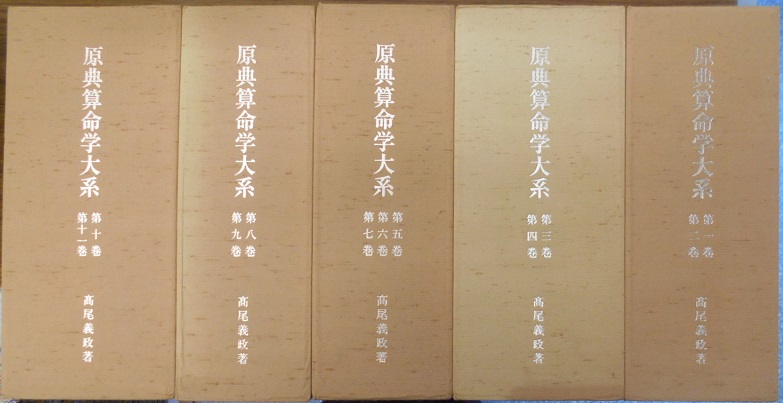 原典算命学大系
第一巻
第二巻
高尾義政著
原典算命学大系
第三巻
第四巻
高尾義政著
原典算命学大系
第五巻
第六巻
第七巻
高尾義政著
原典算命学大系
第八巻
第九巻
高尾義政著
原典算命学大系
第十巻
第十一巻
高尾義政著